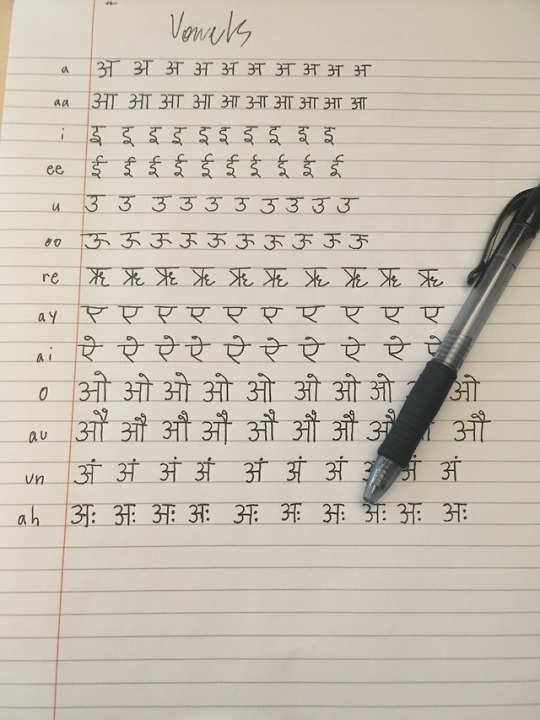 Vowels
a अ अ अ अ अ अ अ अ अ अ
aa आ आ आ आ आ आ आ आ आ आ
i इ इ इ इ इ इ इ इ इ इ
ee ई ई ई ई ई ई ई ई ई ई
u उ उ उ उ उ उ उ उ उ उ
oo ऊ ऊ ऊ ऊ ऊ ऊ ऊ ऊ ऊ ऊ
re ऋ ऋ ऋ ऋ ऋ ऋ ऋ ऋ ऋ ऋ
ay ए ए ए ए ए ए ए ए ए ए
ai ऐ ऐ ऐ ऐ ऐ ऐ ऐ ऐ ऐ ऐ
o ओ ओ ओ ओ ओ ओ ओ ओ ओ
au औ औ औ औ औ औ औ औ औ
un अं अं अं अं अं अं अं अं अं
ah अः अः अः अः अः अः अः अः अः अः